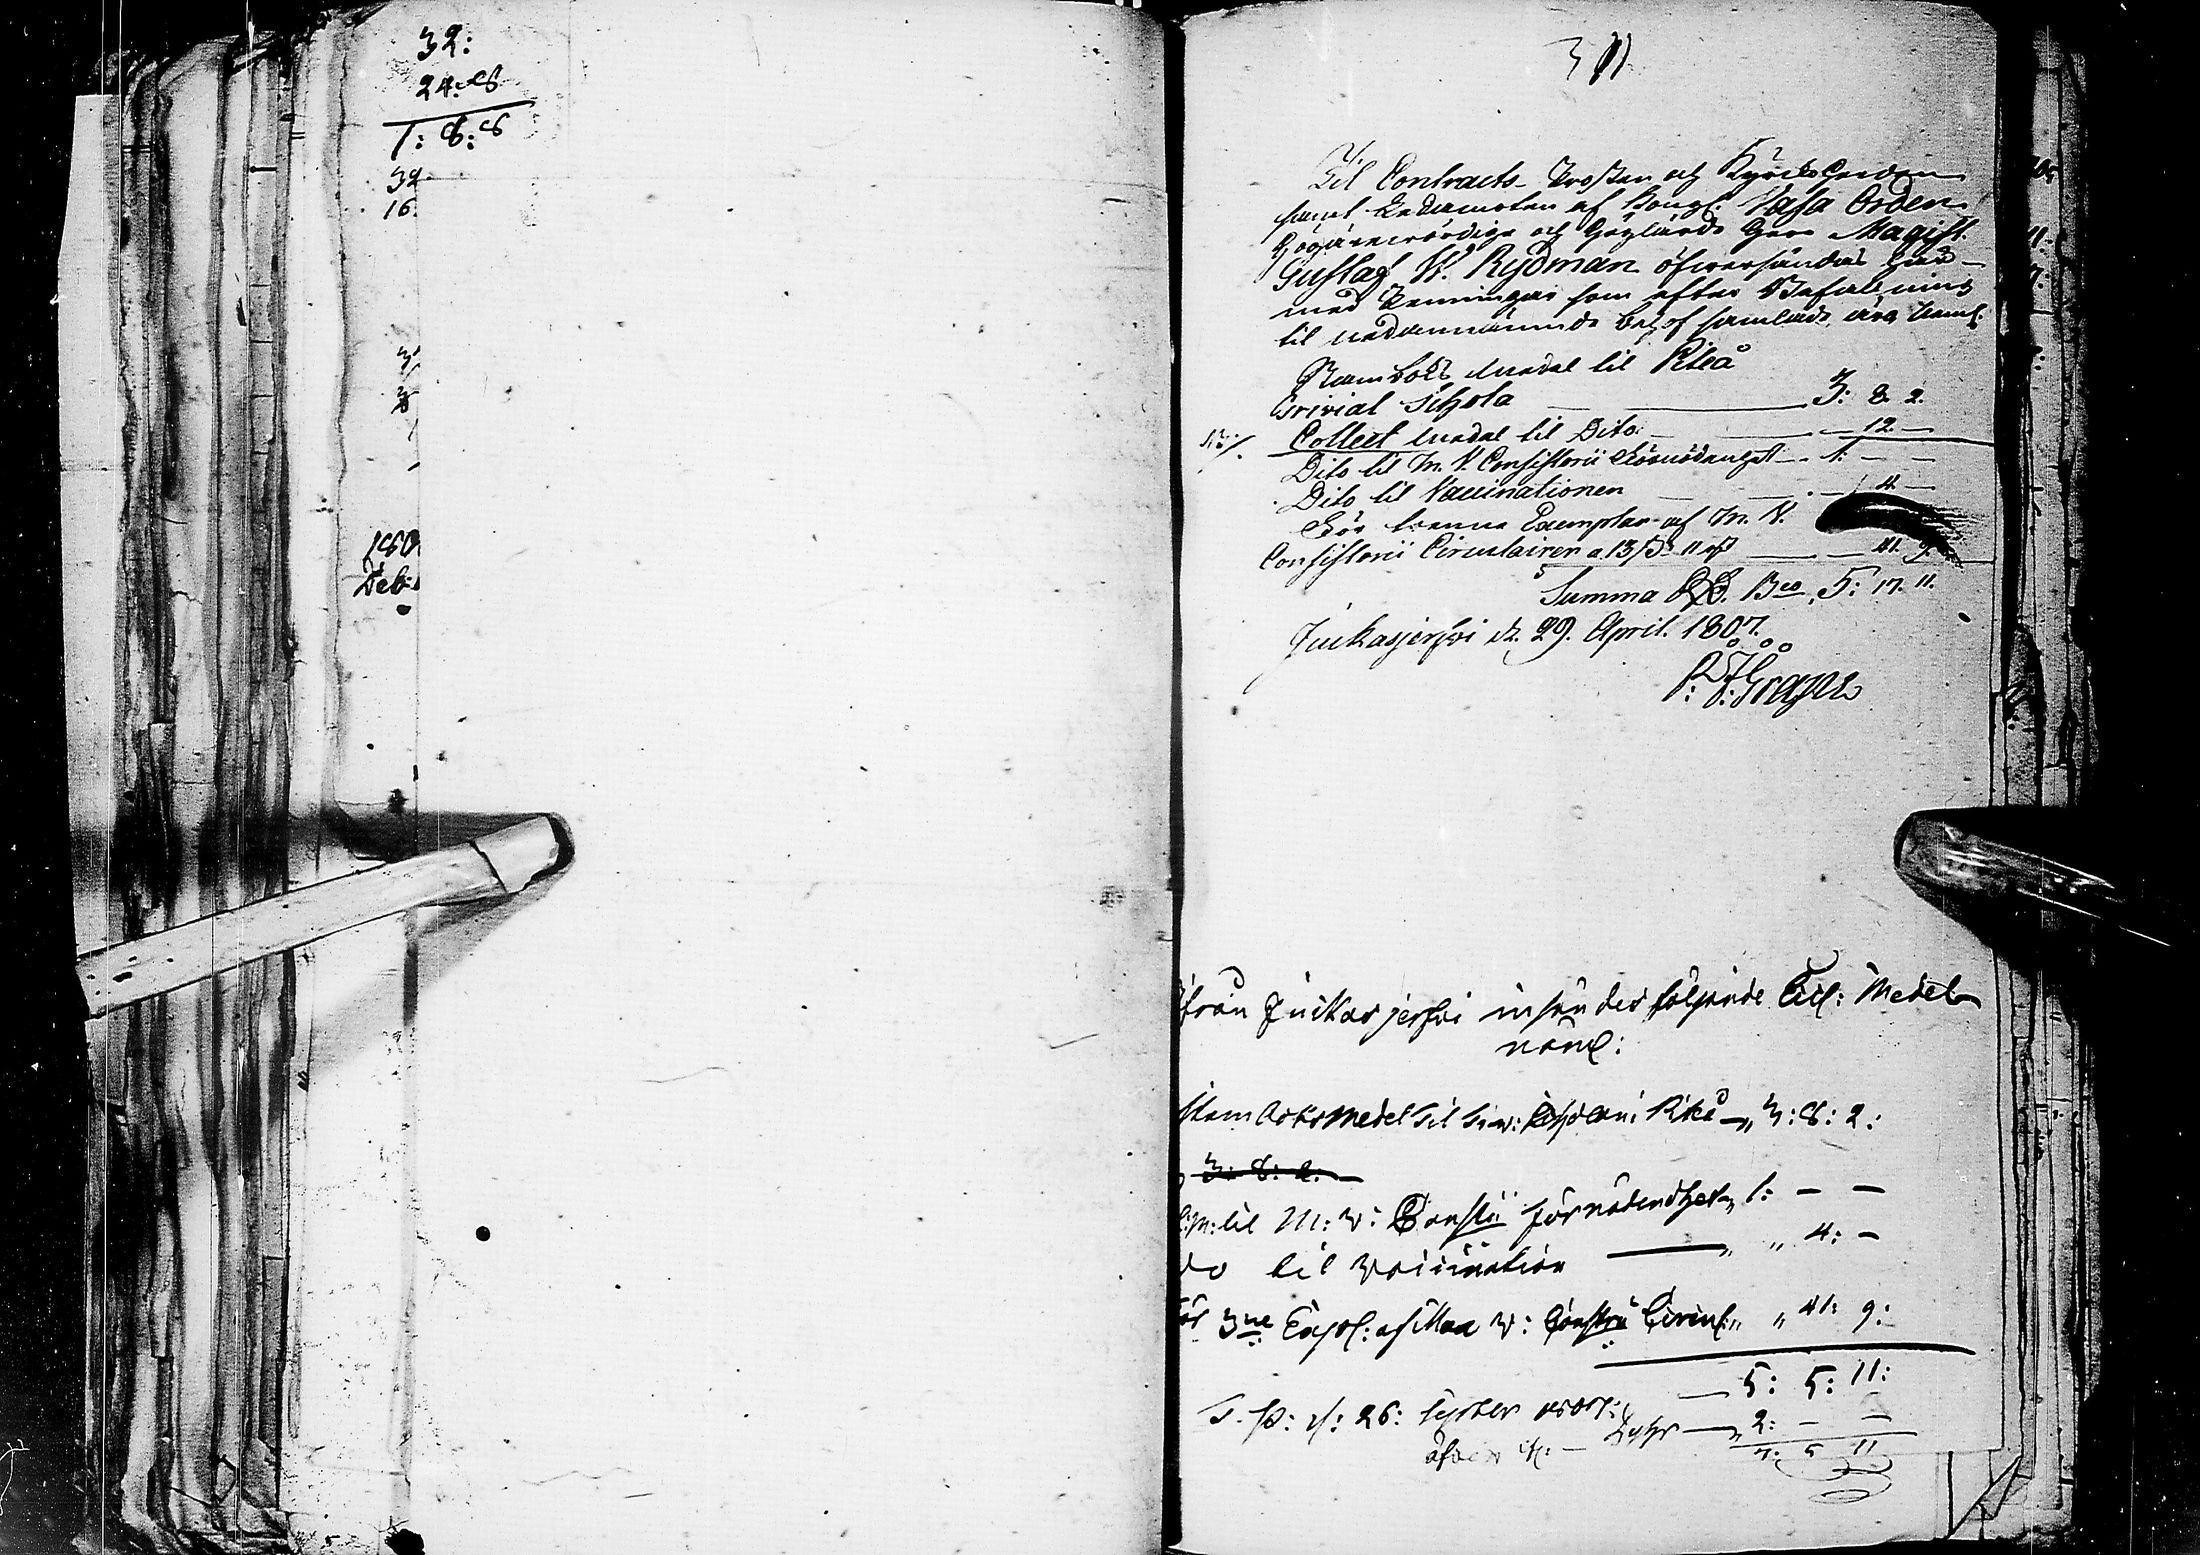 32:
24: 8
1: 8: 8
32
16.
180
Deb
311
Til Contracts-Prosten och Kyrkoherden
samt Ledamoten af Kongl. Vasa Orden
Högärevördige och Höglärde Herr Magist.
Gustaf W. Rydman öfversändas här-
med Penningar som efter Befallning
til nedannämnde behof samlade äro neml.
Stamboks medel til Piteå
Trivial Schola 3: 8. 2.
Collect medel til Dito 12
Dito til M. V. Consistorii Förnödenhet 1.
Dito til Vaccinationen 4.
För trenne Exemplar af M. V.
Consistorii Circulairer a 13 ß 11 rst 41. 9.
Summa RD. Bco 5: 17. 11.
Juckasjerfvi d. 29. April. 1807.
från Juckasjerfvi insändes följande Coll: Medel
näml:
Stamboksmedel til Triv: Scholan i Piteå 3: 8: 2:
3: 8: 2:
C:M: til M: V: Consist: förnödenhet 1: — —
do til Vaccination „ 4: —
för 3ne Expl: af Maa V: Consist: Circul: „ 41: 9:
5: 5: 11:
26: 2: — —
7: 5 11